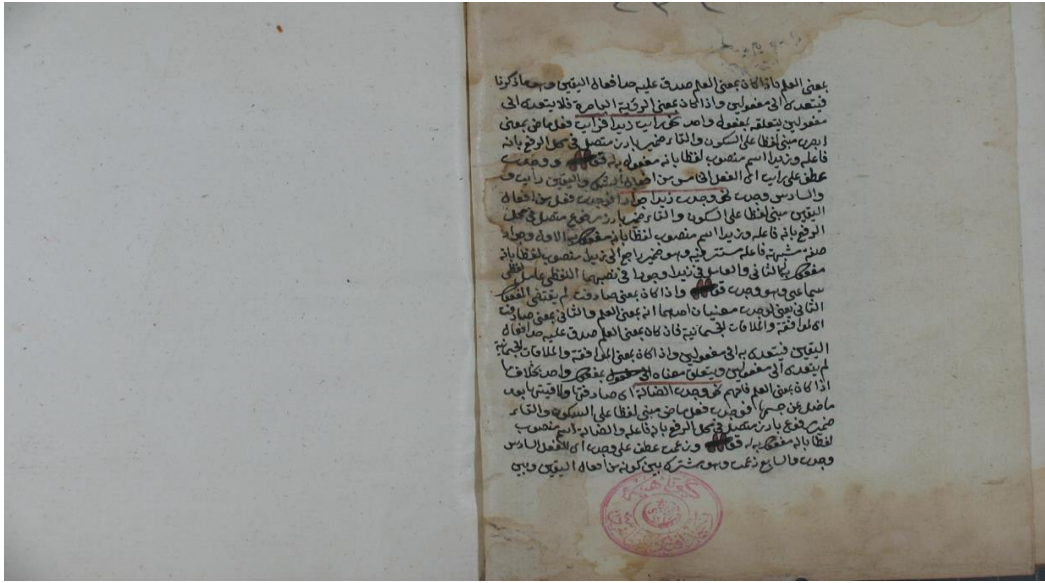 بمعنى العلم فاذا كان بمعنى العلم صدق عليه حد افعال اليقين وهو ما ذكرنا
فيتعدى الى مفعولين واذا كان بمعنى الرؤية الباصرة فلا يتعدى الى
مفعولين يتعلقه بمفعول واحد نحو رايت زيدا فرايت فعل ماض بمعنى
ابصرت مبنى لفظا على السكون والتاء ضمير بارز متصل فى محل الرفع بانه
فاعله وزيدا اسم منصوب لفظا بانه مفعول به له قال ووجدت
عطف على رايت اى الفعل الخامس من افعال الشك واليقين رايت و
والسادس وجدت نحو وجدت زيدا جوادا فوجدت فعل من افعال
اليقين مبنى لفظا على السكون والتاء ضمير بارز مرفوع متصل فى محل
الرفع بانه فاعله وزيدا اسم منصوب لفظا بانه مفعوله الاول وجواد
صفة مشبهة فاعله مستتر فيه وهو ضمير راجع الى زيدا منصوب لفظا بانه
مفعوله الثانى والعامل فى زيدا وجوادا فى نصبهما اللفظى عامل لفظى
سماعى وهو وجدت قال واذا كان بمعنى صادفت لم يقتض المفعول
الثانى يعنى لوجدت معنيان احدهما انه بمعنى العلم والثانى بمعنى صادفت
اى الموافقة والملاقات الجسمانية فان كان بمعنى العلم صدق عليه حد افعال
اليقين فيتعدى به الى مفعولين واذا كان بمعنى الموافقة والملاقات الجسمانية
لم يتعدى الى مفعولين ويتعلق معناه الى بمفعول واحد بخلاف ما
اذا كان بمعنى العلم فافهم نحو وجدت الضالة اى صادفتها ولاقيتها بعد
ما ضل عن فوجدت فعل ماض مبنى لفظا على السكون والتاء
ضمير مرفوع بارز متصل فى محل الرفع بانه فاعله والضالة اسم منصوب
لفظا بانه مفعول به له قال وزعمت عطف على وجدت اى الفعل السادس
وجدت والسابع زعمت وهو مشترك بين كونه من افعال اليقين وبين